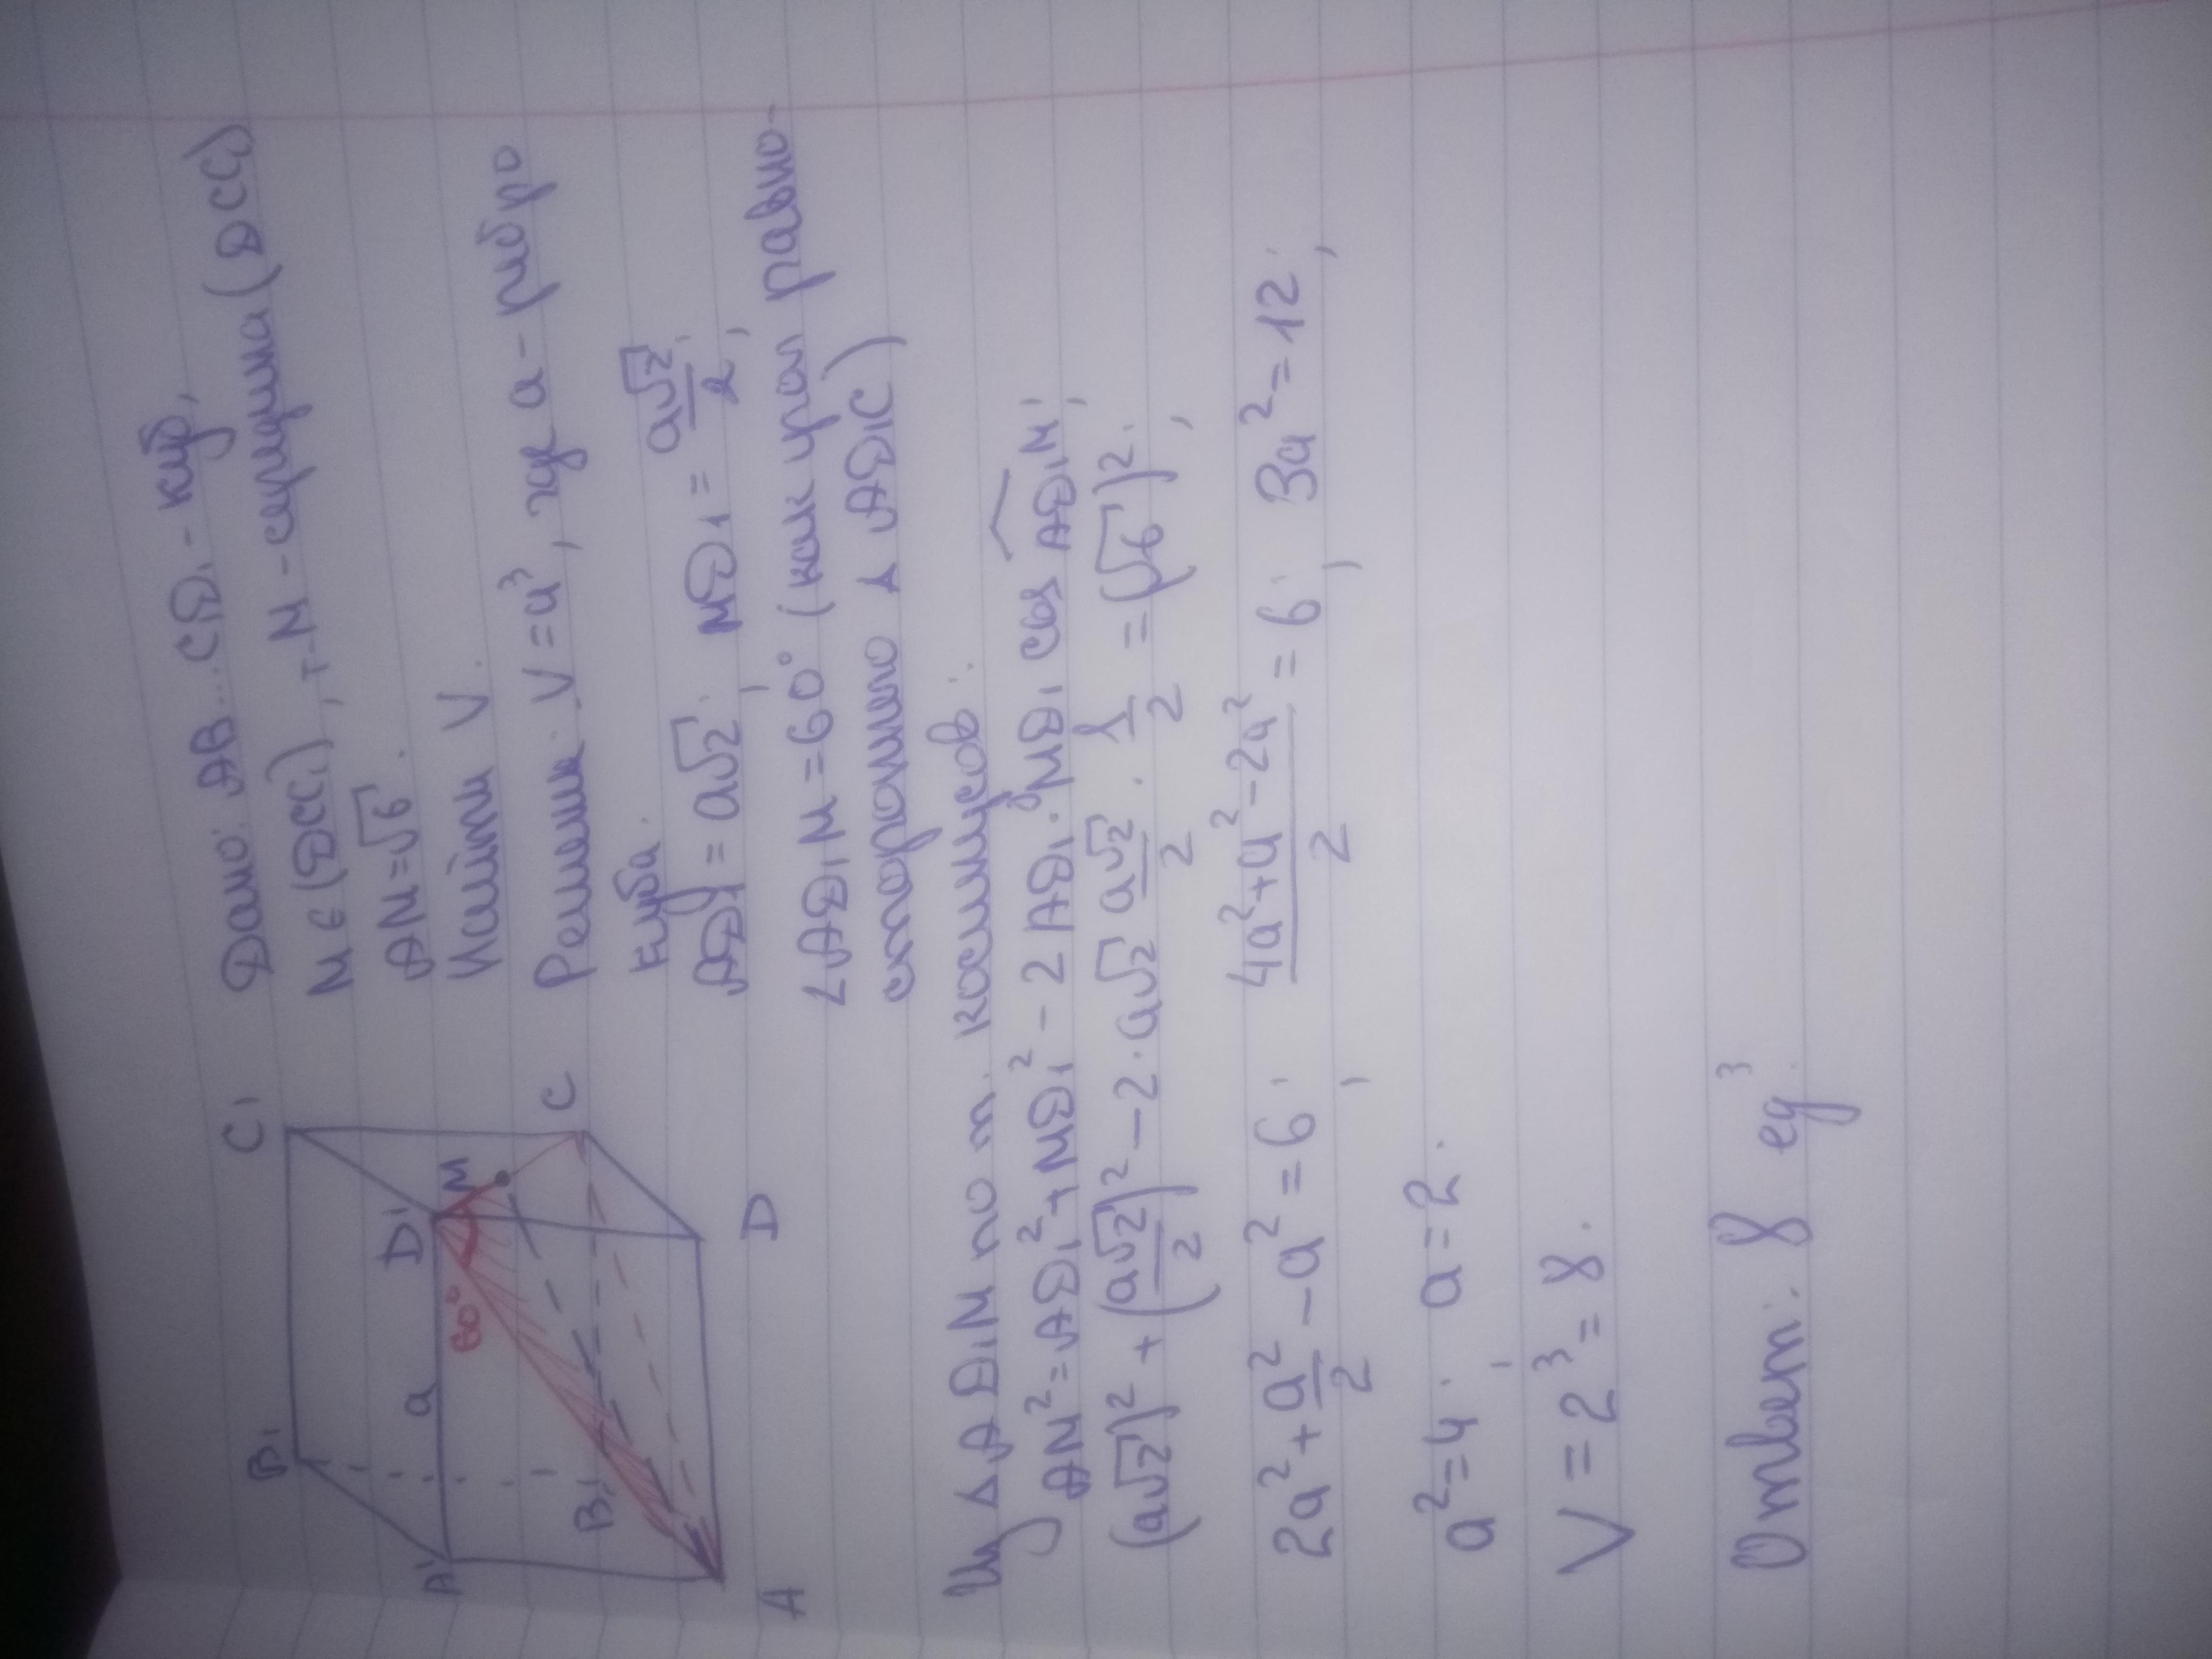 B₁ C₁
A₁ a D₁
60° M
B₁ C
A D
Дано: AB...CD₁ - куб,
M ∈ (DCC₁), т. M - середина (DCC₁)
AM = √6.
Найти V.
Решение: V = a³, где a - ребро
куба.
AD₁ = a√2; MD₁ = a√2/2;
∠AD₁M = 60° (как угол равно-
стороннего Δ AD1C)
Из Δ AD₁M по т. косинусов:
AM² = AD₁² + MD₁² - 2 AD₁ · MD₁ cos AD₁M;
(a√2)² + (a√2/2)² - 2 · a√2 a√2/2 · 1/2 = (√6)²;
2a² + a²/2 - a² = 6; (4a² + a² - 2a²)/2 = 6; 3a² = 12;
a² = 4; a = 2.
V = 2³ = 8.
Ответ: 8 ед³.